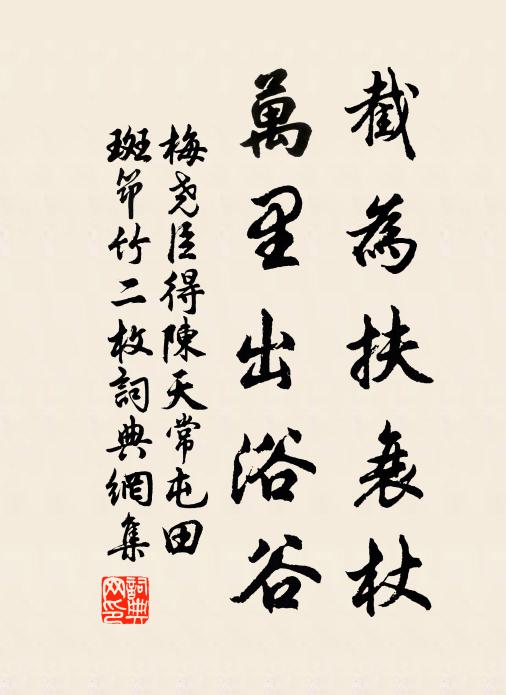 截為扶衰杖
萬里出浴谷
梅堯臣得陳天常屯田
斑笻竹二枚詞典網集
詞典網印